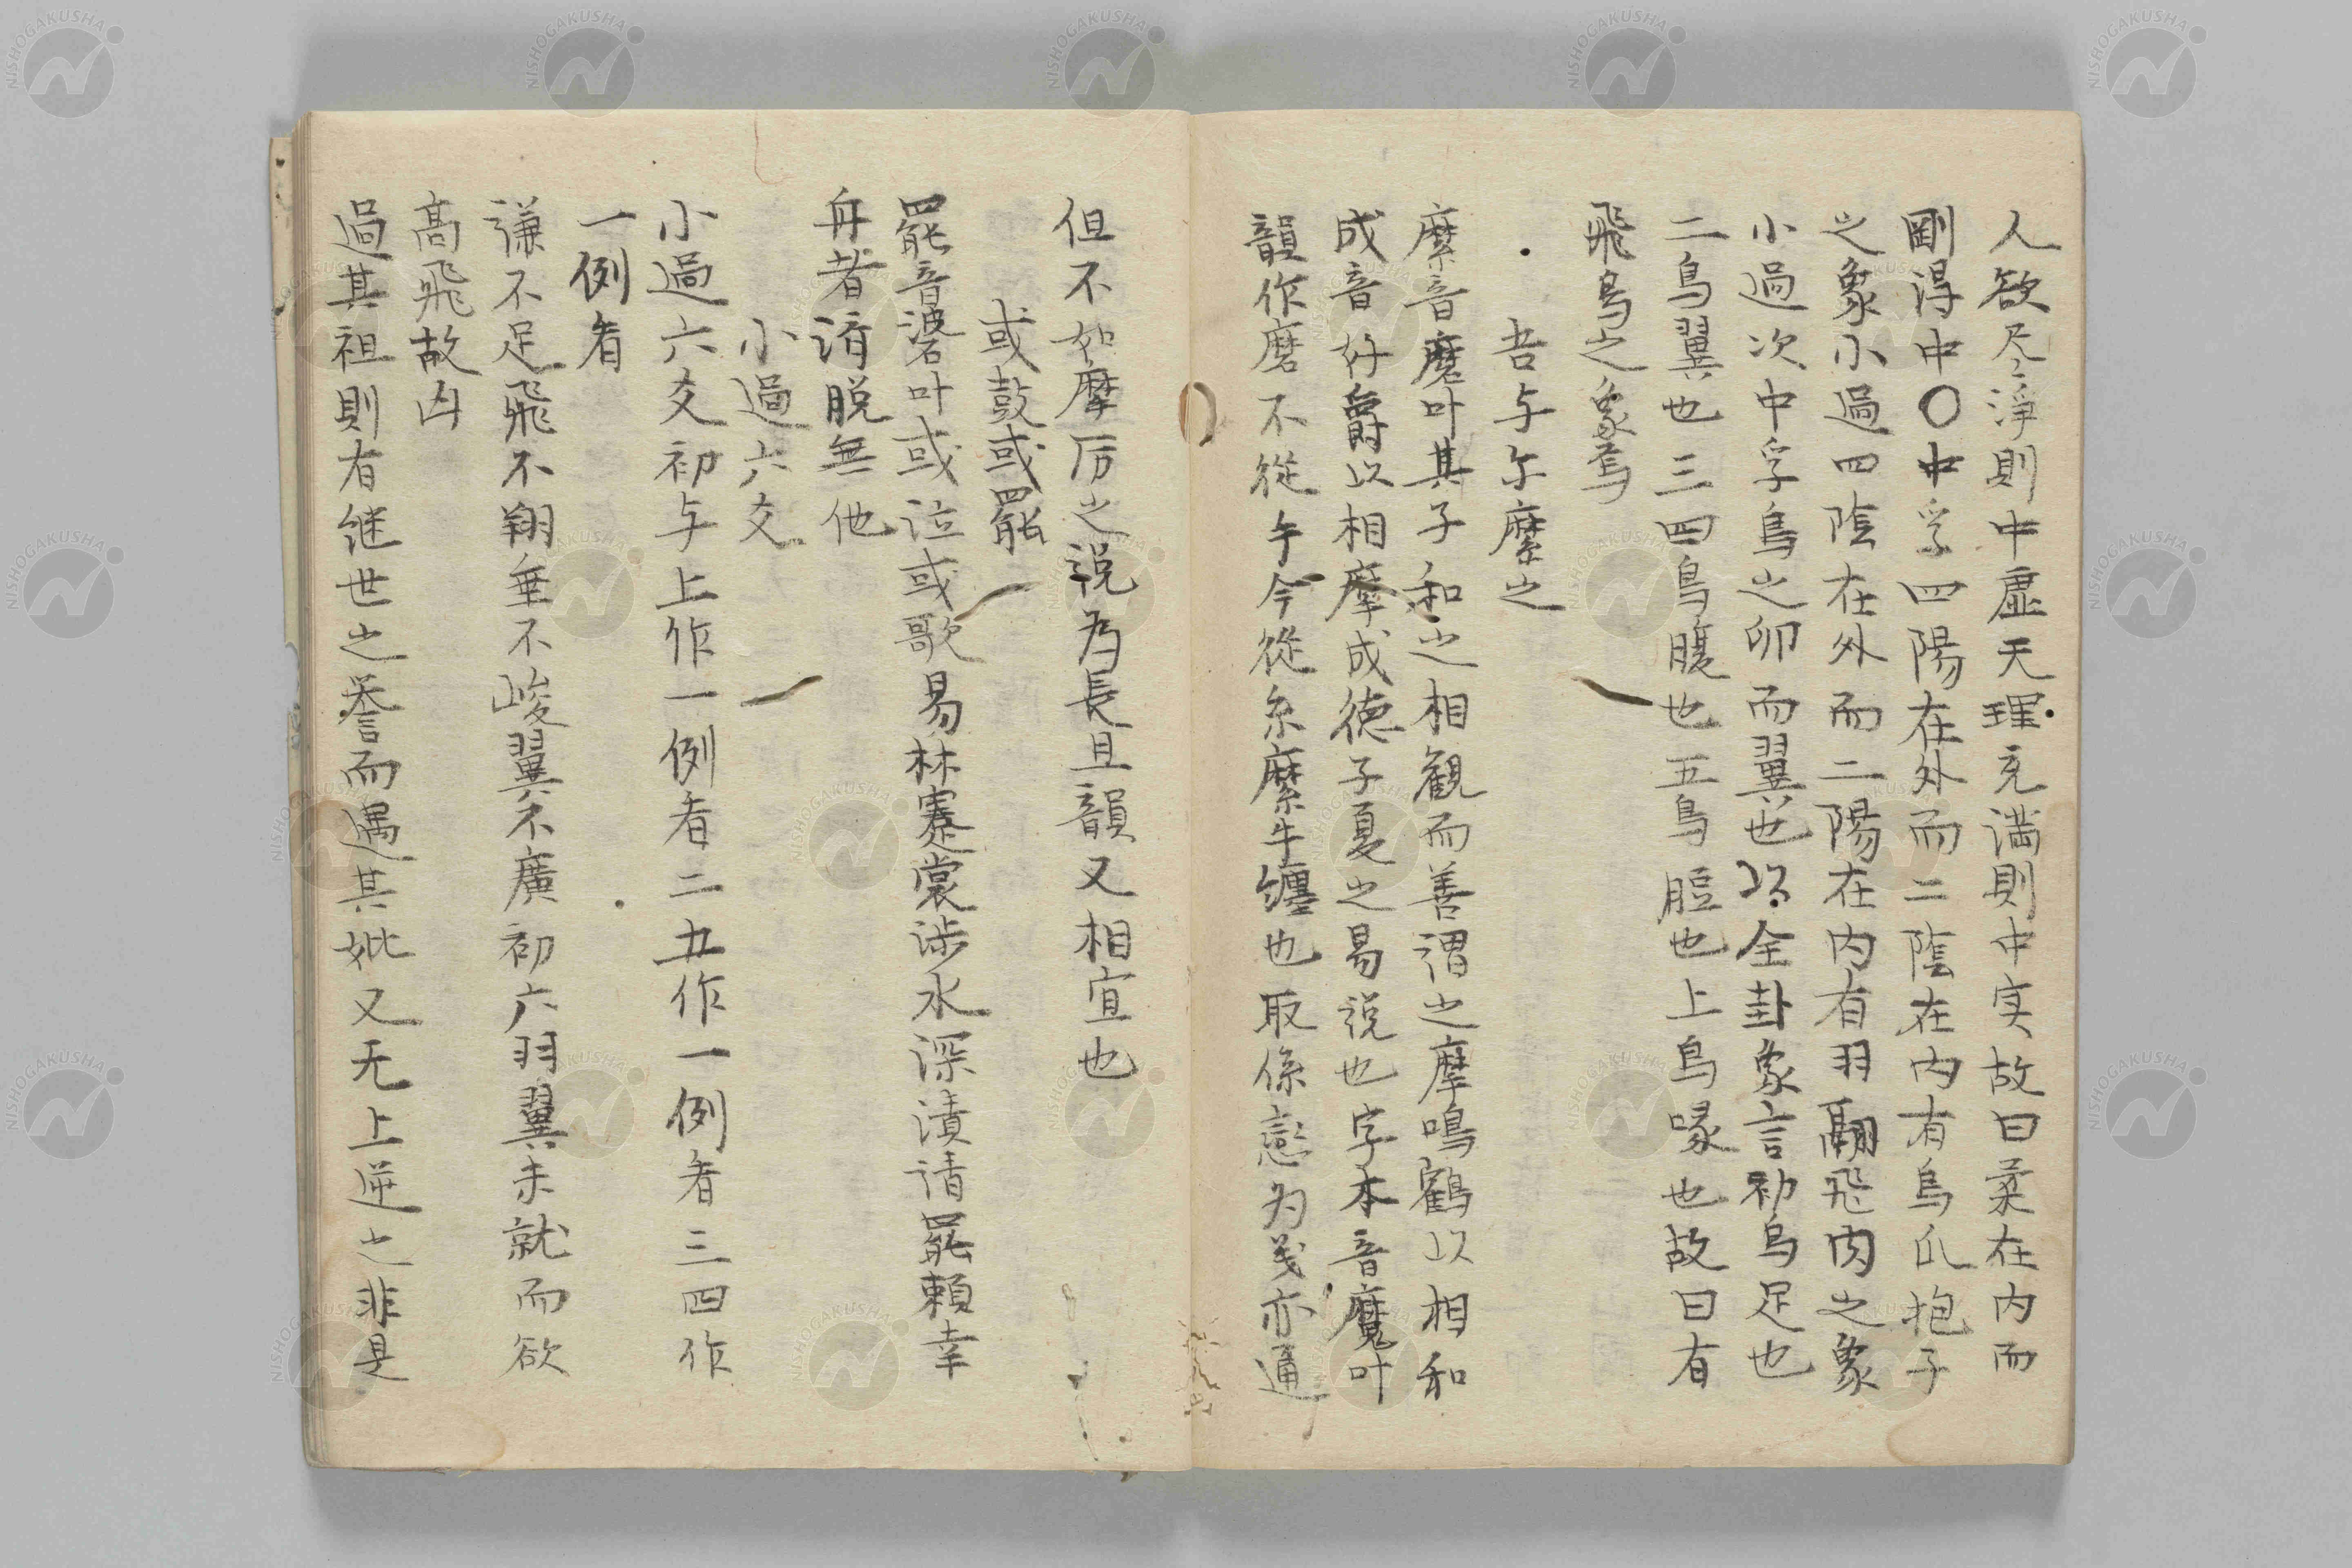 人欲尽淨則中虛天理充満則中实故曰柔在内而
剛得中〇中孚四陽在外而二陰在内有鳥爪抱子
之象小過四陰在外而二陽在内有羽翮飛肉之象
小過次中孚鳥之卵而翼也以全卦象言初鳥足也
二鳥翼也三四鳥腹也五鳥脰也上鳥喙也故曰有
飛鳥之象焉
吾与尓縻之
縻音磨叶其子和之相観而善謂之摩鳴鶴以相和
成音好爵以相摩成徳子夏之易説也字本音魔叶
韻作磨不從牛今從糸縻牛纏也取係戀为義亦通
但不如摩厉之説为長且韻又相宜也
或鼓或罷
罷音婆叶或泣或歌易林褰裳涉水深漬請罷頼幸
舟者済脱無他
小過六爻
小過六爻初与上作一例看二五作一例看三四作
一例看
謙不足飛不翔垂不峻翼不廣初六羽翼未就而欲
高飛故凶
過其祖則有继世之誉而遇其妣又无上逆之非是
NISHOGAKUSHA